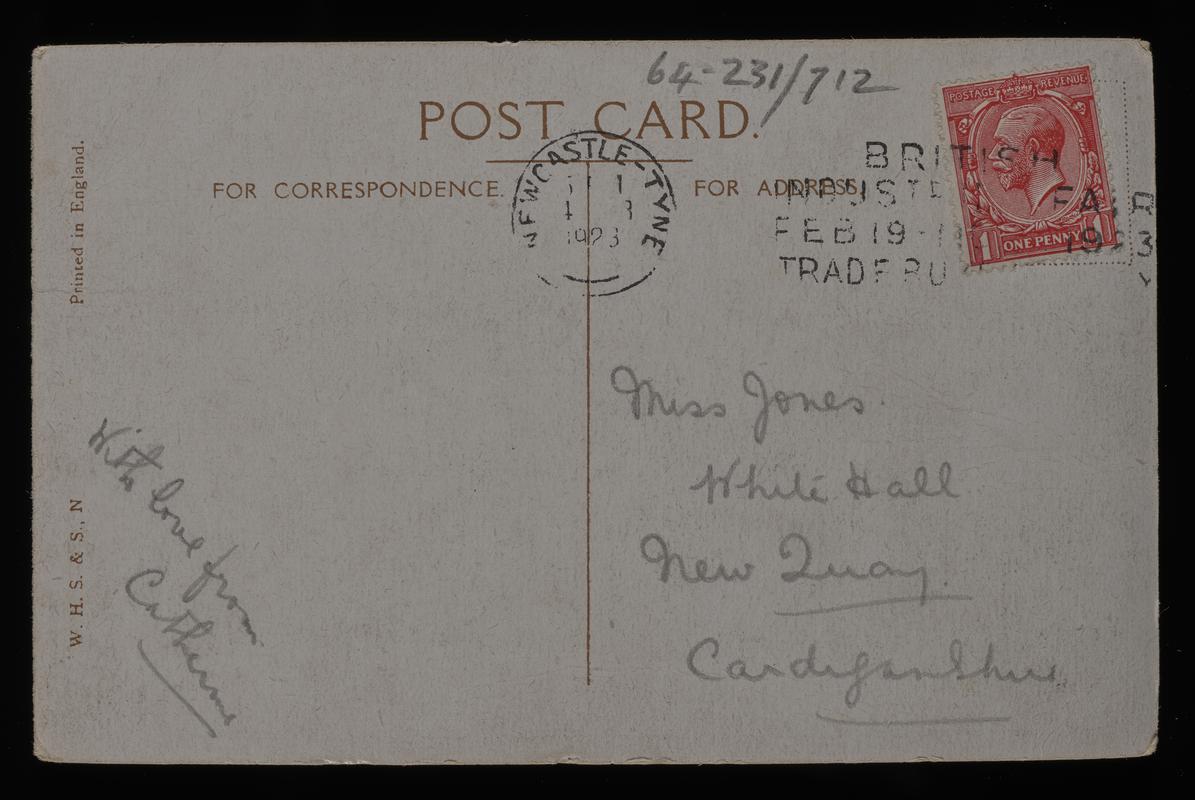 64-231/712
POST CARD.
FOR CORRESPONDENCE.
FOR ADDRESS.
Printed in England.
W. H. S. & S., N
NEWCASTLE-TYNE
1923
POSTAGE REVENUE
1 ONE PENNY 1
BRITISH
FAIR
FEB 19- 1923
With love from
Catherine
Miss Jones
White Hall
New Quay.
Cardiganshire